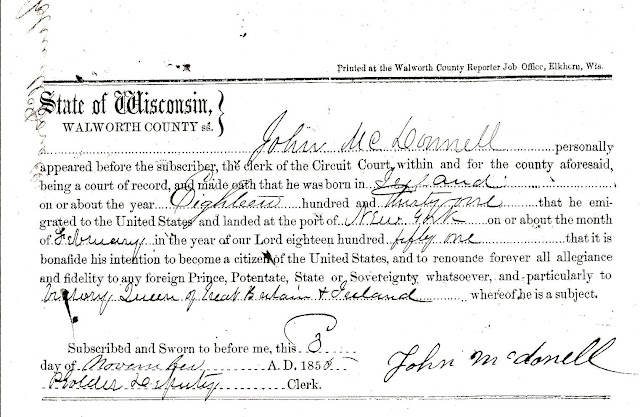 Printed at the Walworth County Reporter Job Office, Elkhorn, Wis.
State of Wisconsin, }
WALWORTH COUNTY ss.
John McDonnell personally
appeared before the subscriber, the clerk of the Circuit Court, within and for the county aforesaid,
being a court of record, and made oath that he was born in Ireland
on or about the year Eighteen hundred and thirty one that he emi-
grated to the United States and landed at the port of New York on or about the month
of February in the year of our Lord eighteen hundred fifty one that it is
bonafide his intention to become a citizen of the United States, and to renounce forever all allegiance
and fidelity to any foreign Prince, Potentate, State or Sovereignty whatsoever, and particularly to
Victory Queen of Great Britain & Ireland whereof he is a subject.
Subscribed and Sworn to before me, this 3
day of November A. D. 185
Deputy Clerk.
John McDonell